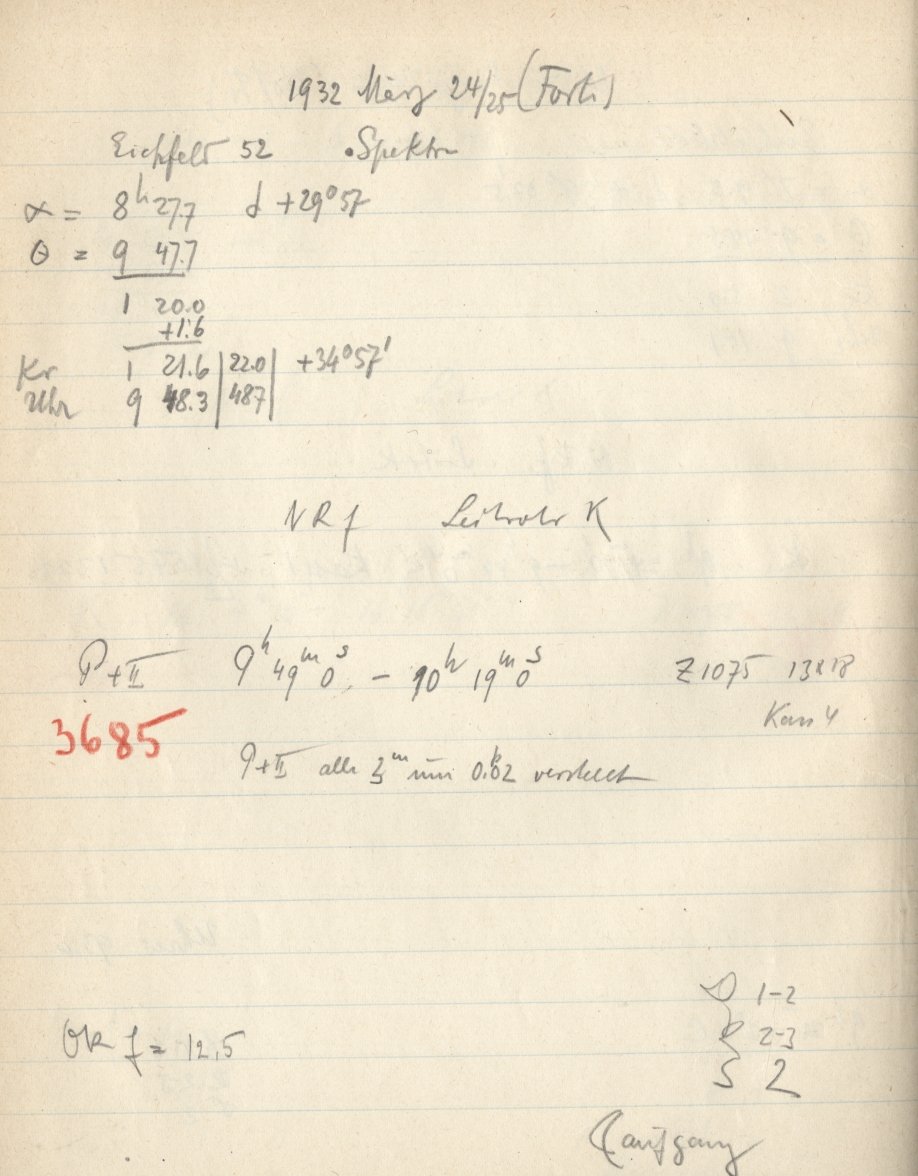 1932 März 24/25 (Forts.)
Eichfeld 52 Spektren
α = 8h 27.7 d +29°57
θ = 9 47.7
1 20.0
+1.6
Kr 1 21.6 | 22.0 | +34°57'
Uhr 9 48.3 | 487 |
NRf Leitrohr K
P+II 9h 49m 0s - 10h 19m 0s Z1075 13x18
3685 Kass 4
P+II alle 3m um 0.R02 verstellt
D 1-2
Ok f = 12,5 R 2-3
S 2
aufgang